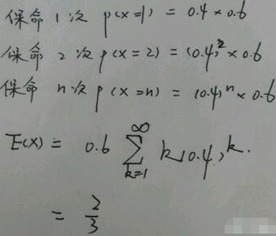 保命 1 次 p(x=1) = 0.4 × 0.6
保命 2 次 p(x=2) = (0.4)² × 0.6
保命 n 次 p(x=n) = (0.4)ⁿ × 0.6
E(x) = 0.6 ∑_{k=1}^{∞} k(0.4)^k.
= 2/3